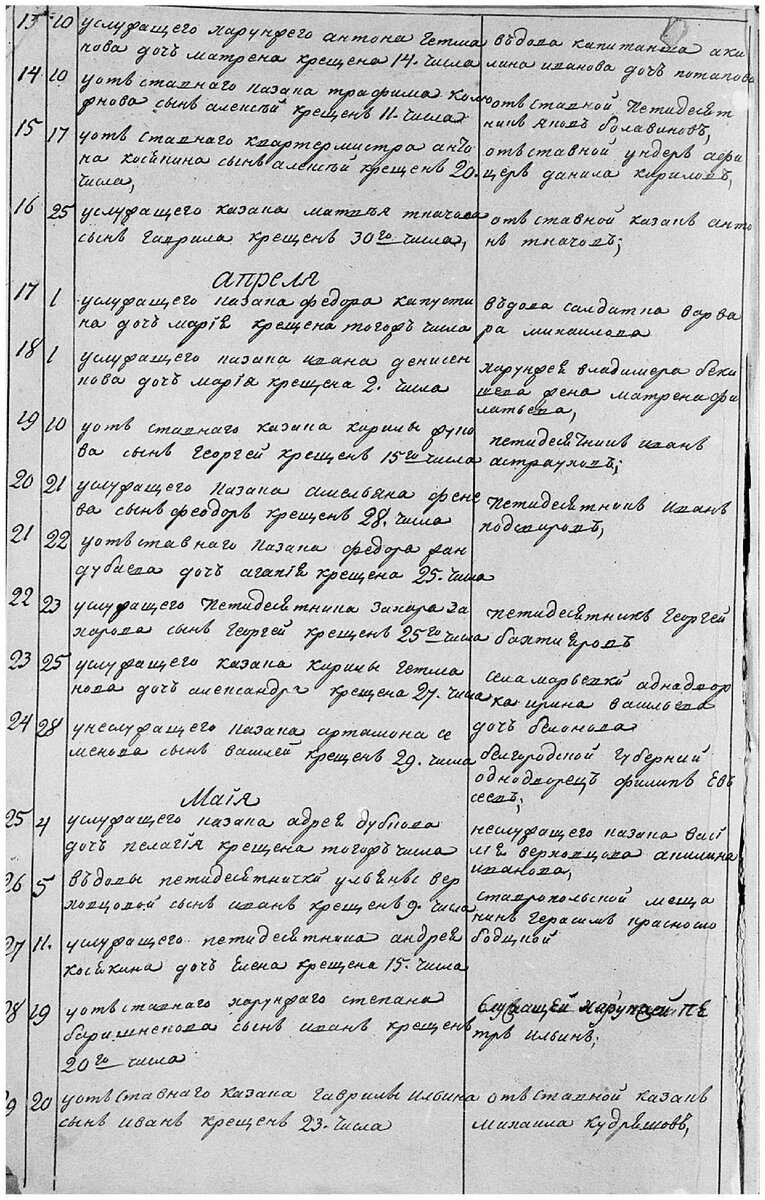 13 10 услужащего харунжего антона гетма
нова дочь матрена крещена 14. числа
въдова капитанша аки
лина иванова дочь потапова
14 10 уотъставнаго казака трафима
сынъ алексѣй крещенъ 11. числа
отъставной петидесят
никъ яковъ болавиновъ,
15 17 уотъставнаго квартермистра анто
на косякина сынъ алексѣй крещенъ 20.
числа,
отъставной ундеръ афи
церъ данила кириловъ,
16 25 услужащего казака матвѣя ткачова
сынъ гаврила крещенъ 30го числа,
отъставной казакъ анто
нъ ткачовъ;
апреля
17 1 услужащего казака федора капусти
на дочь марія крещена тогожъ числа
въдова салдатка варва
ра михаилова
18 1 услужащего казака ивана денисен
кова дочь марія крещена 2. числа
харунжей владимера беки
шева жена матрена фи
латьева,
19 10 уотъставнаго казака кирилы
ва сынъ Георгей крещенъ 15го числа
петидесятникъ иванъ
астрауховъ;
20 21 услужащего казака амельяна
ва сынъ феодоръ крещенъ 28. числа
петидесятникъ иванъ
21 22 уотъставнаго казака федора
дочь агапія крещена 25. числа
22 23 услужащего петидесятника захара за
харова сынъ Георгей крещенъ 25го числа
петидесятникъ Георгей
бахтияровъ
23 25 услужащего казака кирилы гетма
нова дочь александра крещена 27. числа
села марьевки аднадвор
ка ирина васильева
дочь белонова
24 28 унеслужащего казака артамона се
менова сынъ василей крещенъ 29. числа
белгородской Губерний
однодворецъ филипъ Евъ
сеевъ;
Маія
25 4 услужащего казака адрея дубкова
дочь пелагія крещена тогожъ числа
неслужащего казака васі
лья верховцова акилина
иванова,
26 5 въдовы петидесятнички ульяны вер
ховцовой сынъ иванъ крещенъ 9. числа
ставропольской меща
нинъ Герасимъ красносло
бодцкой
27 11. услужащего петидесятника андрея
косякина дочь Елена крещена 15. числа
28 19 уотъставнаго харунжаго степана
барышнекова сынъ иванъ крещенъ
20го числа
Служащей харунжей пе
тръ ильинъ;
29 20 уотъставнаго казака гаврилы ильина
сынъ иванъ крещенъ 23. числа
отъставной казакъ
михаила кудряшовъ,